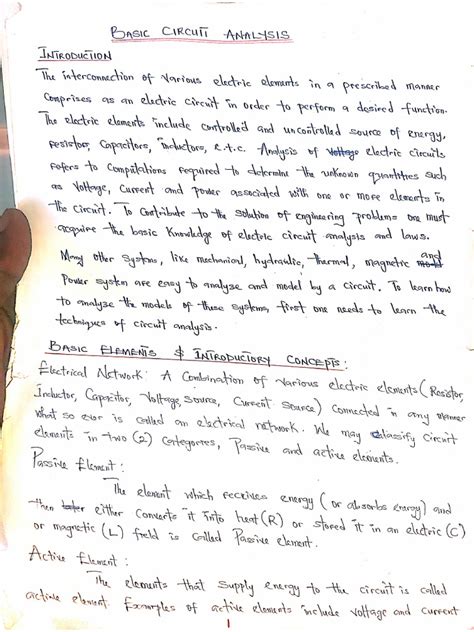 BASIC CIRCUIT ANALYSIS
INTRODUCTION
The interconnection of various electric elements in a prescribed manner
comprises as an electric circuit in order to perform a desired function.
The electric elements include controlled and uncontrolled source of energy,
resistor, Capacitors, inductors, e.t.c. Analysis of voltage electric circuits
refers to Computations required to determine the unknown quantities such
as voltage, Current and power associated with one or more elements in
the circuit. To Contribute to the solution of engineering problems one must
acquire the basic knowledge of electric circuit analysis and laws.
Many other systems, like mechanical, hydraulic, thermal, magnetic and
Power system are easy to analyse and model by a circuit. To learn how
to analyse the models of these systems, first one needs to learn the
techniques of circuit analysis.
BASIC ELEMENTS & INTRODUCTORY CONCEPTS:
Electrical Network: A Combination of various electric elements (Resistor,
Inductor, Capacitor, Voltage Source, Current Source) Connected in any manner
what so ever is called an electrical network. We may classify circuit
elements in two (2) Categories, Passive and active elements.
Passive Element:
The element which receives energy (or absorbs energy) and
then either Converts it into heat (R) or stored it in an electric (C)
or magnetic (L) field is Called Passive element.
Active Element:
The elements that supply energy to the circuit is called
active element. Examples of active elements include voltage and current
1